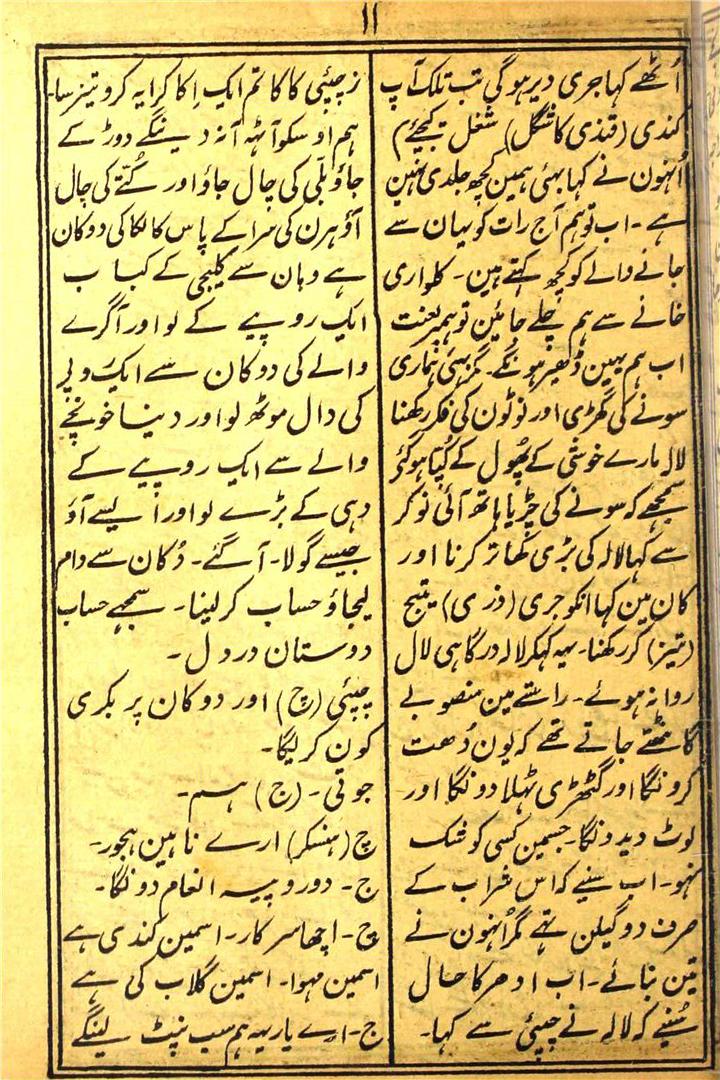 ۱۱
اُٹھے کہا جری دیر ہوگی تب تلک آپ
کندی (قندی کا شگل) شغل کیجئے م
اُنہون نے کہا بھئی ہمین کچھ جلدی نہین
ہے۔ اب تو ہم آج رات کو یہان سے
جانے والے کو کچھ کہتے ہین۔ کلواری
خانے سے ہم چلے جائین تو ہمپر لعنت
اب ہم یہین ڈھیر ہونگے۔ مگر بھئی ہماری
سونے کی گھڑی اور نوٹون کی فکر رکھنا
لالہ مارے خوشی کے پھول کے کُپا ہوگئے
سمجھے کہ سونے کی چڑیا ہاتھ آئی نوکر
سے کہا لالہ کی بڑی کھاتر کرنا اور
کان مین کہا انکو جری (ذری) یتیج
(تیز) کر رکھنا۔ یہ کہکر لالہ درگاہی لال
روانہ ہوئے۔ راستے مین منصوبے
گانٹھتے جاتے تھے کہ یون دُھت
کرونگا اور گٹھڑی ٹہلا دونگا اور
لوٹ دیدونگا۔ جسمین کسی کو شک
نہو۔ اب سنیے کہ اس شراب کے
صرف دو گیلن تھے مگر اُنہون نے
تین بنائے۔ اب ادھر کا حال
سُنیے کہ لالہ نے چپئی سے کہا۔
ز چپئی کاکا تم ایک اِکا کرایہ کرو تیز سا۔
ہم اوسکو آٹھ آنہ دینگے دوڑ کے
جاؤ بلی کی چال جاؤ اور کُتے کی چال
آؤ ہرن کی سرا کے پاس کالکا کی دوکان
ہے وہان سے کلیجی کے کباب
ایک روپیے کے لو اور آگرے
والے کی دوکان سے ایک روپیہ
کی دال موٹھ لو اور دینا خوانچے
والے سے ایک روپیے کے
دہی کے بڑے لو اور ایسے آؤ
جیسے گولا۔ آگئے۔ دُکان سے دام
لیجاؤ حساب کرلینا۔ سمجھے حساب
دوستان در دل۔
چپئی (چ) اور دوکان پر بکری
کون کرلیگا۔
جوتی۔ (ج) ہم۔
چ (ہنسکر) ارے ناہین ہجور۔
ج۔ دو روپیہ انعام دونگا۔
چ۔ اچھا سرکار۔ اسمین کندی ہے
اسمین مہوا۔ اسمین گلاب کی ہے
ج۔ ارے یار یہ ہم سب نپٹ لینگے